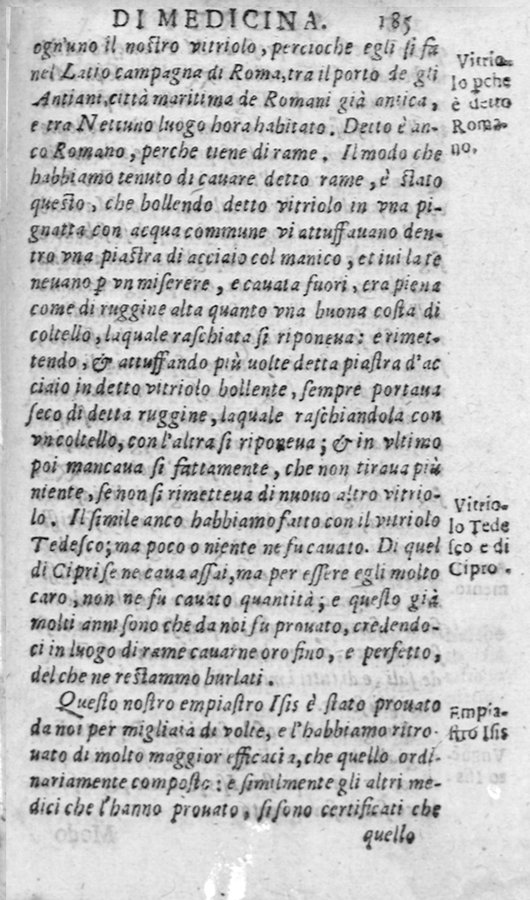 DI MEDICINA. 185
ogn'uno il nostro vitriolo, percioche egli si fà
nel Latio campagna di Roma, tra il porto de gli
Antiani, città maritima de Romani già antica,
e tra Nettuno luogo hora habitato. Detto è an-
co Romano, perche tiene di rame. Il modo che
habbiamo tenuto di cauare detto rame, è stato
questo, che bollendo detto vitriolo in vna pi-
gnatta con acqua commune vi attuffauano den-
tro vna piastra di acciaio col manico, et iui la te
neuano p vn miserere, e cauata fuori, era piena
come di ruggine alta quanto vna buona costa di
coltello, laquale raschiata si riponeua: e rimet-
tendo, & attuffando più uolte detta piastra d'ac
ciaio in detto vitriolo bollente, sempre portaua
seco di detta ruggine, laquale raschiandola con
vn coltello, con l'altra si riponeua; & in vltimo
poi mancaua si fattamente, che non tiraua più
niente, se non si rimetteua di nuouo altro vitrio-
lo. Il simile anco habbiamo fatto con il vitriolo
Tedesco; ma poco o niente ne fu cauato. Di quel
di Cipri se ne caua assai, ma per essere egli molto
caro, non ne fu cauato quantità; e questo già
molti anni sono che da noi fu prouato, credendo-
ci in luogo di rame cauarne oro fino, e perfetto,
del che ne restammo burlati.
Questo nostro empiastro Isis è stato prouato
da noi per migliaia di volte, e l'habbiamo ritro-
uato di molto maggior efficacia, che quello ordi-
nariamente composto: e similmente gli altri me-
dici che l'hanno prouato, si sono certificati che
quello
Vitrio-
lo pche
è detto
Roma-
no.
Vitrio-
lo Tede
sco e di
Cipro.
Empia-
stro Isis